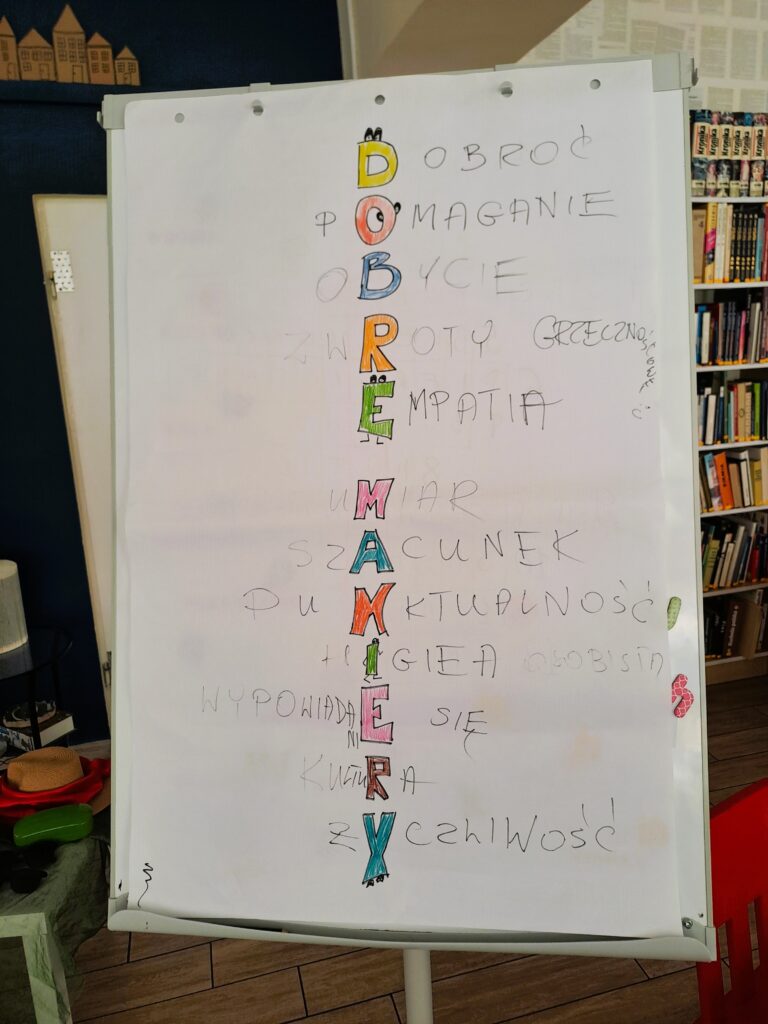 DOBROĆ
POMAGANIE
OBYCIE
ZWROTY GRZECZNOŚCIOWE :)
EMPATIA
UMIAR
SZACUNEK
PUNKTUALNOŚĆ
HIGIEA OSOBISTA
WYPOWIADANIE SIĘ
KULTURA
ŻYCZLIWOŚĆ